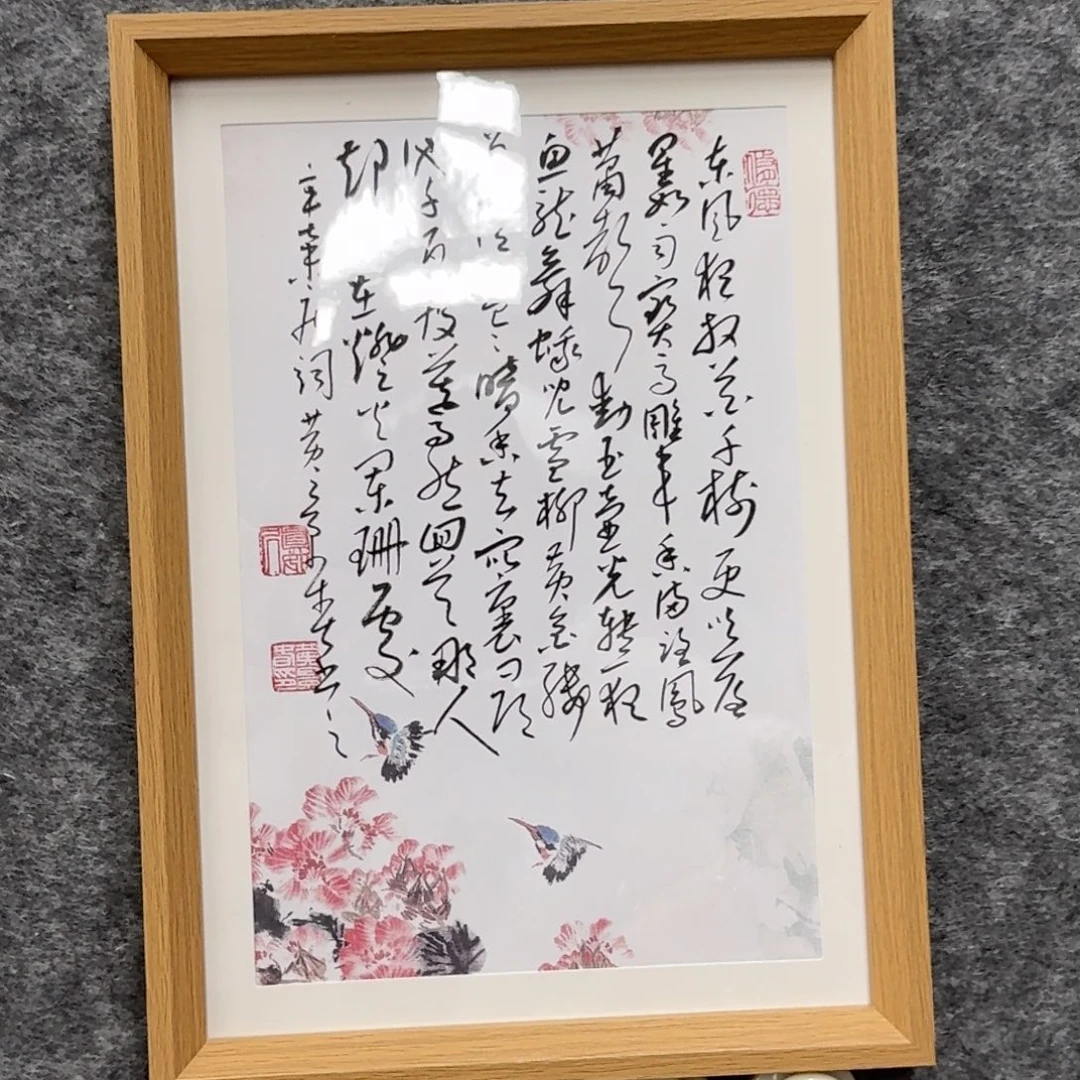 东风夜放花千树更吹落
星如雨宝马雕车香满路凤
箫声动玉壶光转一夜
鱼龙舞蛾儿雪柳黄金缕
笑语盈盈暗香去众里寻
他千百度蓦然回首那人
却在灯火阑珊处
辛弃疾词